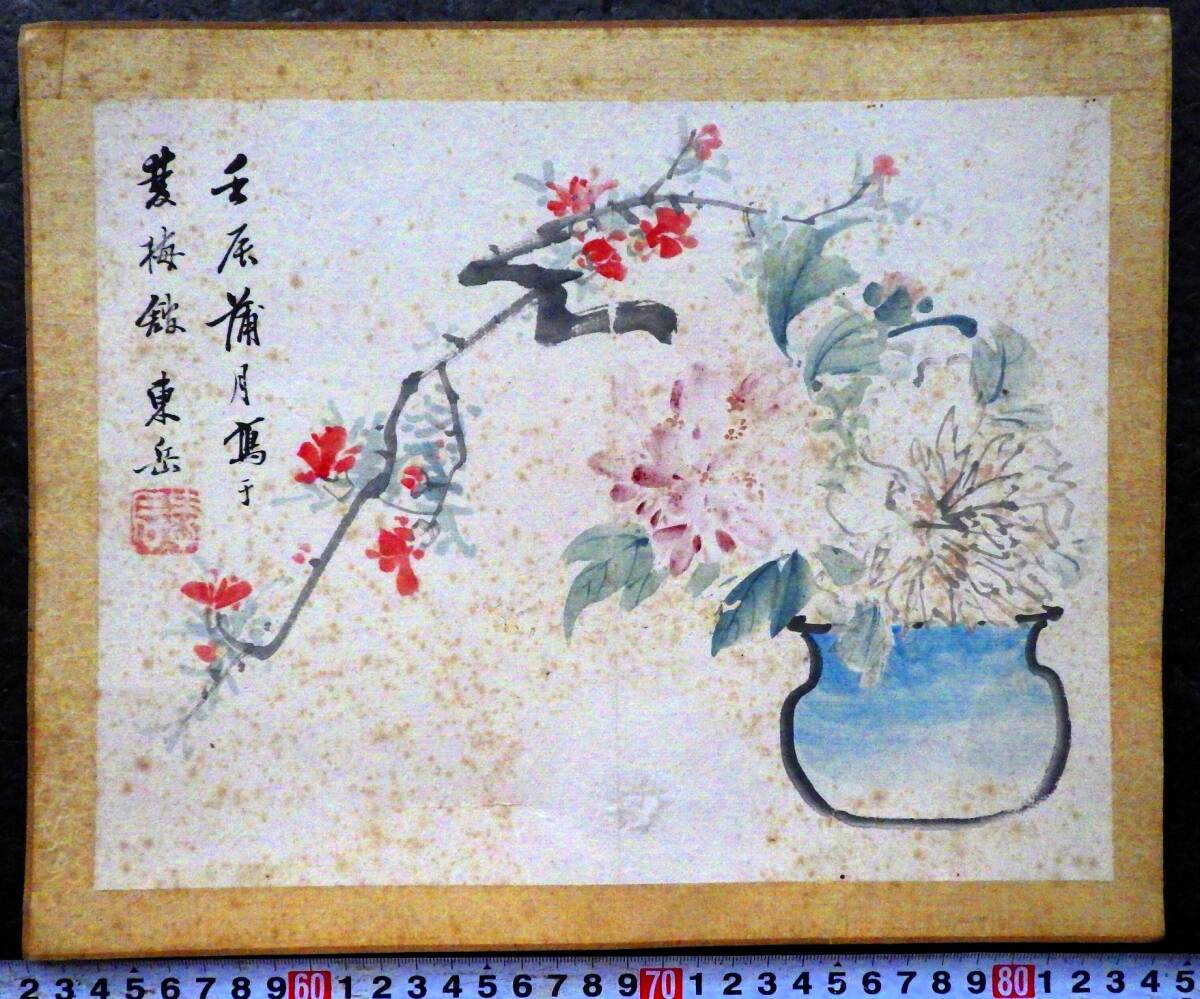 壬辰蒲月寫于
梅館 東岳
2 3 4 5 6 7 8 9 60 1 2 3 4 5 6 7 8 9 70 1 2 3 4 5 6 7 8 9 80 1 2 3 4 5